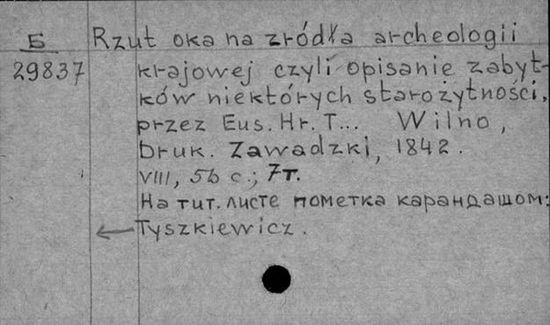 Б Rzut oka na zródła archeologii
29837 krajowej czyli opisanie zabyt-
ków niektórych starożytności,
przez Eus. Hr. T... Wilno,
druk. Zawadzki, 1842.
VIII, 56 с.; 7т.
На тит. листе пометка карандашом:
Tyszkiewicz.